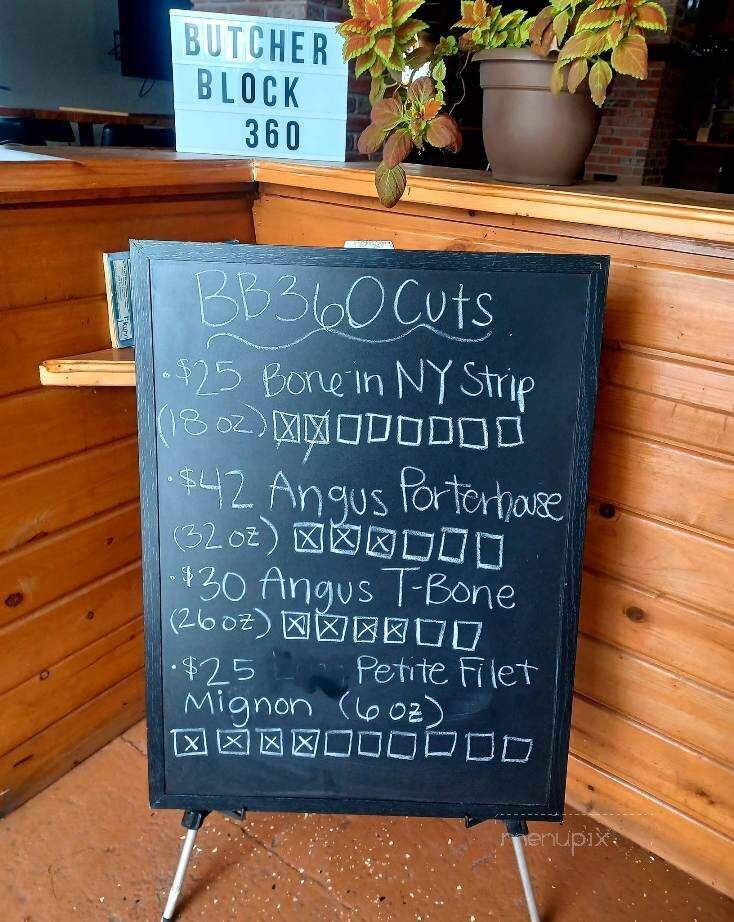 BUTCHER
BLOCK
360
BB360 Cuts
·$25 Bone-in NY Strip
(18 oz)
·$42 Angus Porterhouse
(32 oz)
·$30 Angus T-Bone
(26 oz)
·$25 Petite Filet
Mignon (6 oz)
menupix